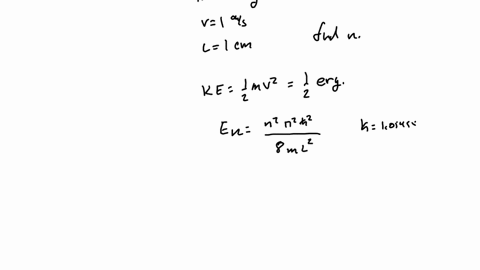 v = 1 cm/s
L = 1 cm
find n.
KE = 1/2 mv² = 1/2 erg.
En = n² π² ħ² / 8mL²
ħ = 1.0545